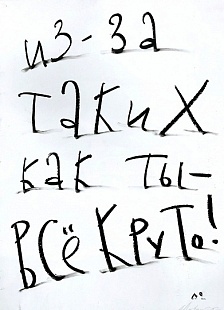 из-за
таких
как ты-
всё круто!